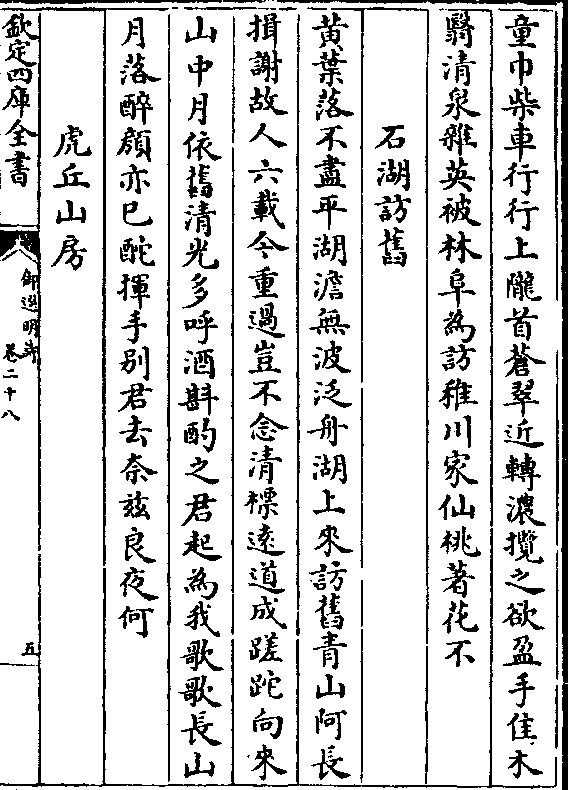 童巾柴車行行上隴首蒼翠近轉濃攬之欲盈手佳木
翳清泉雜英被林阜為訪稚川家仙桃著花不
石湖訪舊
黄葉落不盡平湖澹無波泛舟湖上來訪舊青山阿長
揖謝故人六載今重過豈不念清標遠道成蹉跎向來
山中月依舊清光多呼酒斟酌之君起為我歌歌長山
月落醉顔亦已酡揮手别君去奈兹良夜何
虎丘山房
欽定四庫全書
御選明詩
卷二十八
五